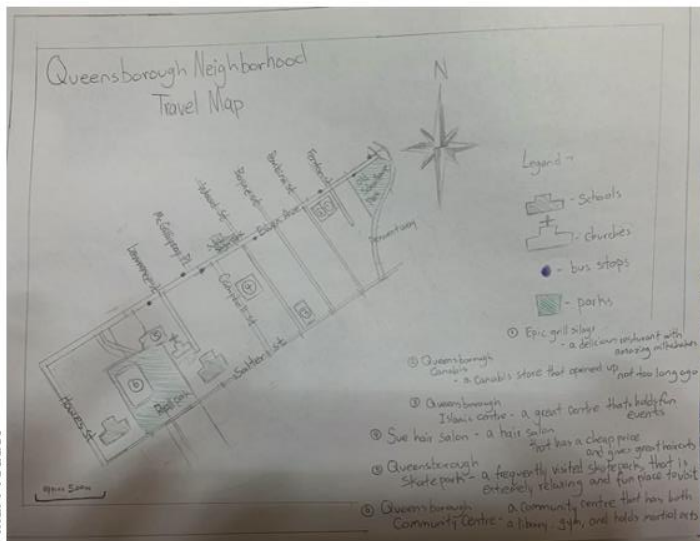 Queensborough Neighborhood
Travel Map
N
Legend -
- Schools
- churches
- bus stops
- parks
Wood St
Boyne st
Ewen Ave
Campbell st
Salter st
Howes st
Derwent way
④
③
⑤
⑥
① Epic grill
- a delicious restaurant with
amazing milkshakes
② Queensborough
Canabis
- a Canabis store that opened up
not too long ago
③ Queensborough
Islamic centre - a great centre thats holds fun
events
④ Sue hair salon - a hair salon
that has a cheap price
and gives great haircuts
⑤ Queensborough
Skatepark - a frequently visited skatepark, that is
extremely relaxing and fun place to visit
⑥ Queensborough
Community Centre - a community centre that has both
a library, gym, and holds martial arts